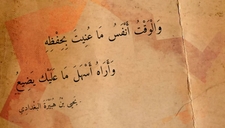 وَالْوَقْتُ أَنْفَسُ مَا عُنِيتَ بِحِفْظِهِ
وَأَرَاهُ أَسْهَلَ مَا عَلَيْكَ يَضِيعُ
يحيى بن هبيرة البغدادي